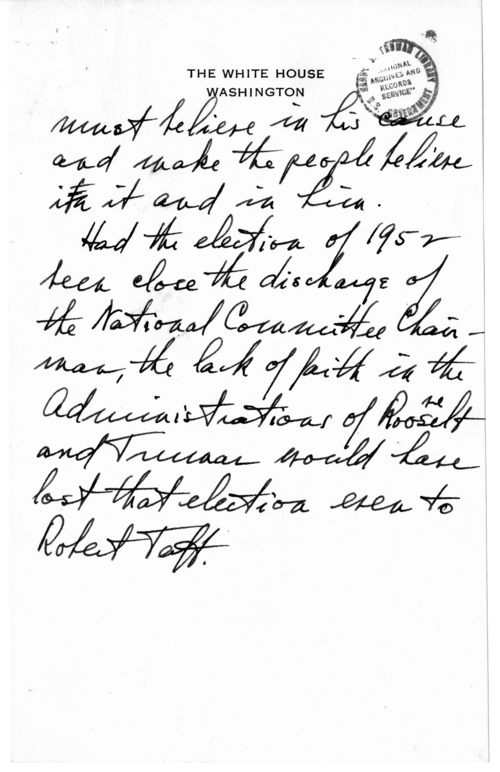 THE WHITE HOUSE
WASHINGTON
HARRY S. TRUMAN LIBRARY
"NATIONAL
ARCHIVES AND
RECORDS
SERVICE"
U.S. GOVERNMENT
must believe in his cause
and make the people believe
in it and in him.
Had the election of 1952
been close the discharge of
the National Committee Chair-
man, the lack of faith in the
Administrations of Roosevelt
and Truman would have
lost that election even to
Robert Taft.